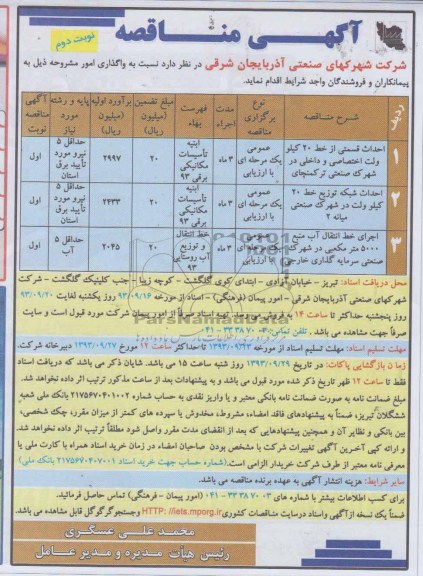 آگهـی منـاقصه
نوبت دوم
شرکت شهرکهای صنعتی آذربایجان شرقی در نظر دارد نسبت به واگذاری امور مشروحه ذیل به
پیمانکاران و فروشندگان واجد شرایط اقدام نماید.
ردیف
شرح مناقصه
نوع برگزاری مناقصه
مدت اجراء
فهرست بهاء
مبلغ تضمین (میلیون ریال)
برآورد اولیه (میلیون ریال)
پایه و رشته مورد نیاز
آگهی مناقصه نوبت
۱
احداث قسمتی از خط ۲۰ کیلو ولت اختصاصی و داخلی در شهرک صنعتی ترکمنچای
عمومی یک مرحله ای با ارزیابی
۳ ماه
ابنیه تأسیسات مکانیکی برقی ۹۳
۲۰
۲۹۹۷
حداقل ۵ نیرو مورد تأیید برق استان
اول
۲
احداث شبکه توزیع خط ۲۰ کیلو ولت در شهرک صنعتی میانه ۲
عمومی یک مرحله ای با ارزیابی
۳ ماه
ابنیه تأسیسات مکانیکی برقی ۹۳
۲۰
۲۴۳۳
حداقل ۵ نیرو مورد تأیید برق استان
اول
۳
اجرای خط انتقال آب منبع ۵۰۰۰ متر مکعبی در شهرک صنعتی سرمایه گذاری خارجی
عمومی یک مرحله ای با ارزیابی
۳ ماه
خط انتقال و توزیع آب روستایی ۹۳
۲۰
۲۰۴۵
حداقل ۵ آب
اول
محل دریافت اسناد: تبریز - خیابان آزادی - ابتدای کوی گلگشت - کوچه زیبا - جنب کلینیک گلگشت - شرکت
شهرکهای صنعتی آذربایجان شرقی - امور پیمان (فرهنگی) - اسناد از مورخه ۹۳/۰۹/۱۶ روز یکشنبه لغایت ۹۳/۰۹/۲۰
روز پنجشنبه حداکثر تا ساعت ۱۴ به فروش می رسد. تهیه اسناد صرفاً از امور پیمان شرکت مورد قبول است و سایت
صرفاً جهت مشاهده می باشد. تلفن تماس: ۰۳ ۷۰ ۳۸ ۳۳ - ۰۴۱
ParsNamadData
مهلت تسلیم اسناد: مهلت تسلیم اسناد از مورخه ۱۳۹۳/۰۹/۲۳ تا حداکثر ساعت ۱۴ مورخ ۱۳۹۳/۰۹/۲۷ دبیرخانه شرکت.
زمان بازگشایی پاکات: در تاریخ ۱۳۹۳/۰۹/۲۹ روز شنبه ساعت ۱۵ می باشد. شایان ذکر می باشد که دریافت اسناد
فقط تا ساعت ۱۲ ظهر تاریخ ذکر شده مورد قبول می باشد و به پیشنهادات بعد از ساعت مذکور ترتیب اثر داده نخواهد شد.
مبلغ ضمانت نامه به صورت ضمانت نامه بانکی معتبر و یا واریز نقدی به حساب شماره ۲۱۷۵۶۷۰۴۰۱۰۰۲ بانک ملی شعبه
ششگلان تبریز، ضمناً به پیشنهادهای فاقد امضاء، مشروط، مخدوش یا سپرده های کمتر از میزان مقرر، چک شخصی،
بین بانکی و نظایر آن و همچنین پیشنهادهایی که بعد از انقضای مدت مقرر واصل شود مطلقاً ترتیب اثر داده نخواهد شد.
و ارائه کپی آخرین آگهی تغییرات شرکت با مشخص بودن صاحبان امضاء در زمان خرید اسناد همراه با کارت ملی یا
معرفی نامه معتبر از طرف شرکت خریدار الزامی است.(شماره حساب جهت خرید اسناد ۲۱۷۵۶۷۰۴۰۷۰۰۱ بانک ملی)
سایر شرایط: هزینه انتشار آگهی به عهده برنده مناقصه می باشد.
برای کسب اطلاعات بیشتر با شماره های ۰۳ ۷۰ ۳۸ ۳۳ - ۰۴۱ (امور پیمان - فرهنگی) تماس حاصل فرمائید.
ضمناً یک نسخه از آگهی و اسناد در سایت مناقصات کشوری HTTP: //iets.mporg.ir و جستجوگر گوگل قابل مشاهده می باشد.
محمد علی عسگری
رئیس هیأت مدیره و مدیر عامل